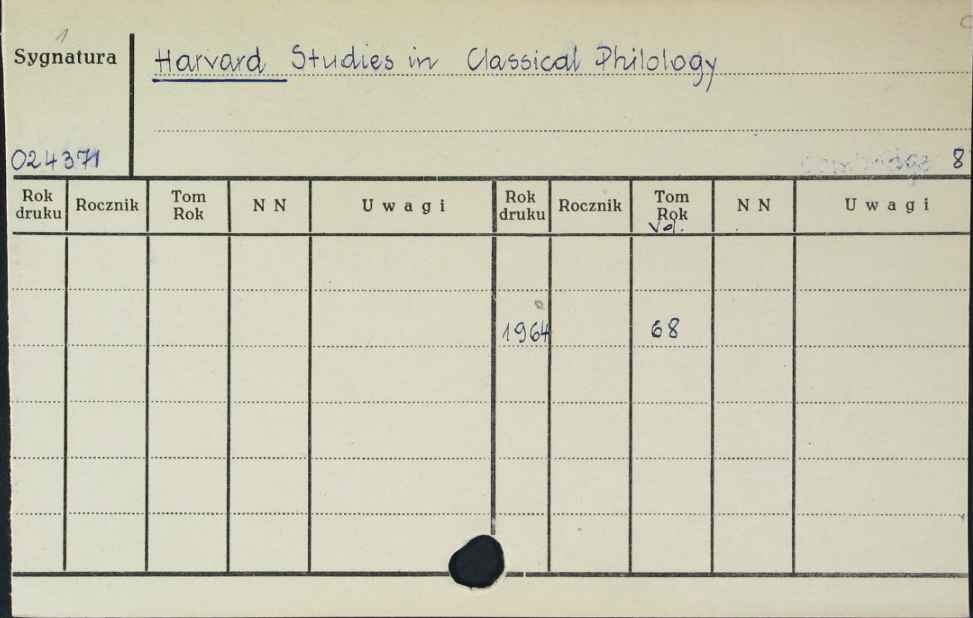 1
Sygnatura
Harvard Studies in Classical Philology
024371
8
Rok druku Rocznik Tom Rok N N Uwagi Rok druku Rocznik Tom Rok N N Uwagi
Vol.
1964 68